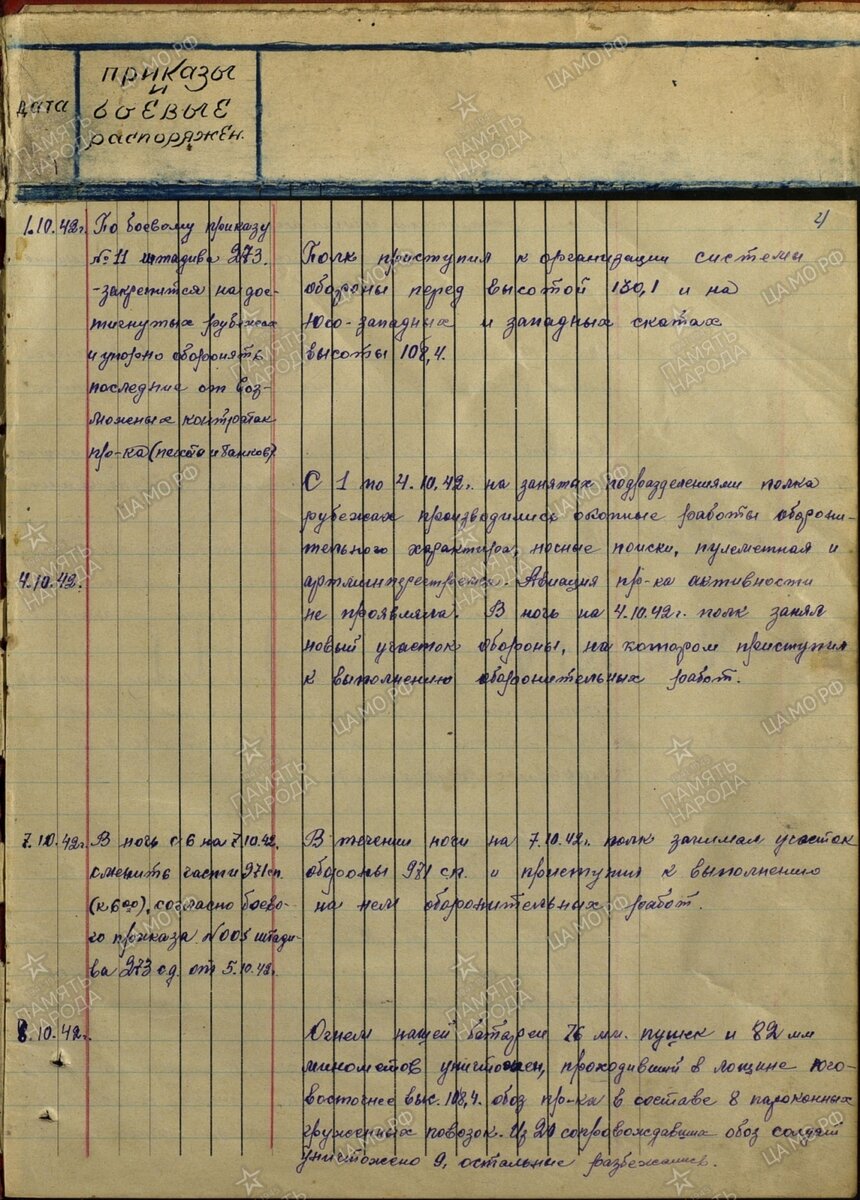 дата
приказы
и
боевые
распоряжен.
4
1.10.42г.
По боевому приказу
№11 штадива 273.
-закрепится на дос-
тигнутых рубежах
и упорно оборонять
последние от воз-
можных контратак
пр-ка (пехоты и танков)
Полк приступил к организации системы
обороны перед высотой 130,1 и на
Юго-западных и западных скатах
высоты 108,4.
4.10.42г.
С 1 по 4.10.42г. на занятых подразделениями полка
рубежах производились окопные работы оборони-
тельного характера, ночные поиски, пулеметная и
Авиация пр-ка активности
не проявляла. В ночь на 4.10.42г. полк занял
новый участок обороны, на котором приступил
к выполнению оборонительных работ.
7.10.42г.
В ночь с 6 на 7.10.42.
сменить части 971 сп.
(к 6 00), согласно боево-
го приказа №005 штади-
ва 273 сд. от 5.10.42г.
В течении ночи на 7.10.42г. полк занимал участок
обороны 971 сп. и приступил к выполнению
на нем оборонительных работ.
8.10.42г.
Огнем нашей батареи 76 мм. пушек и 82 мм
минометов уничтожен, проходивший в лощине юго-
восточнее выс. 108,4. обоз пр-ка в составе 8 пароконных
груженных повозок. Из 20 сопровождавших обоз солдат
уничтожено 9, остальные разбежались.